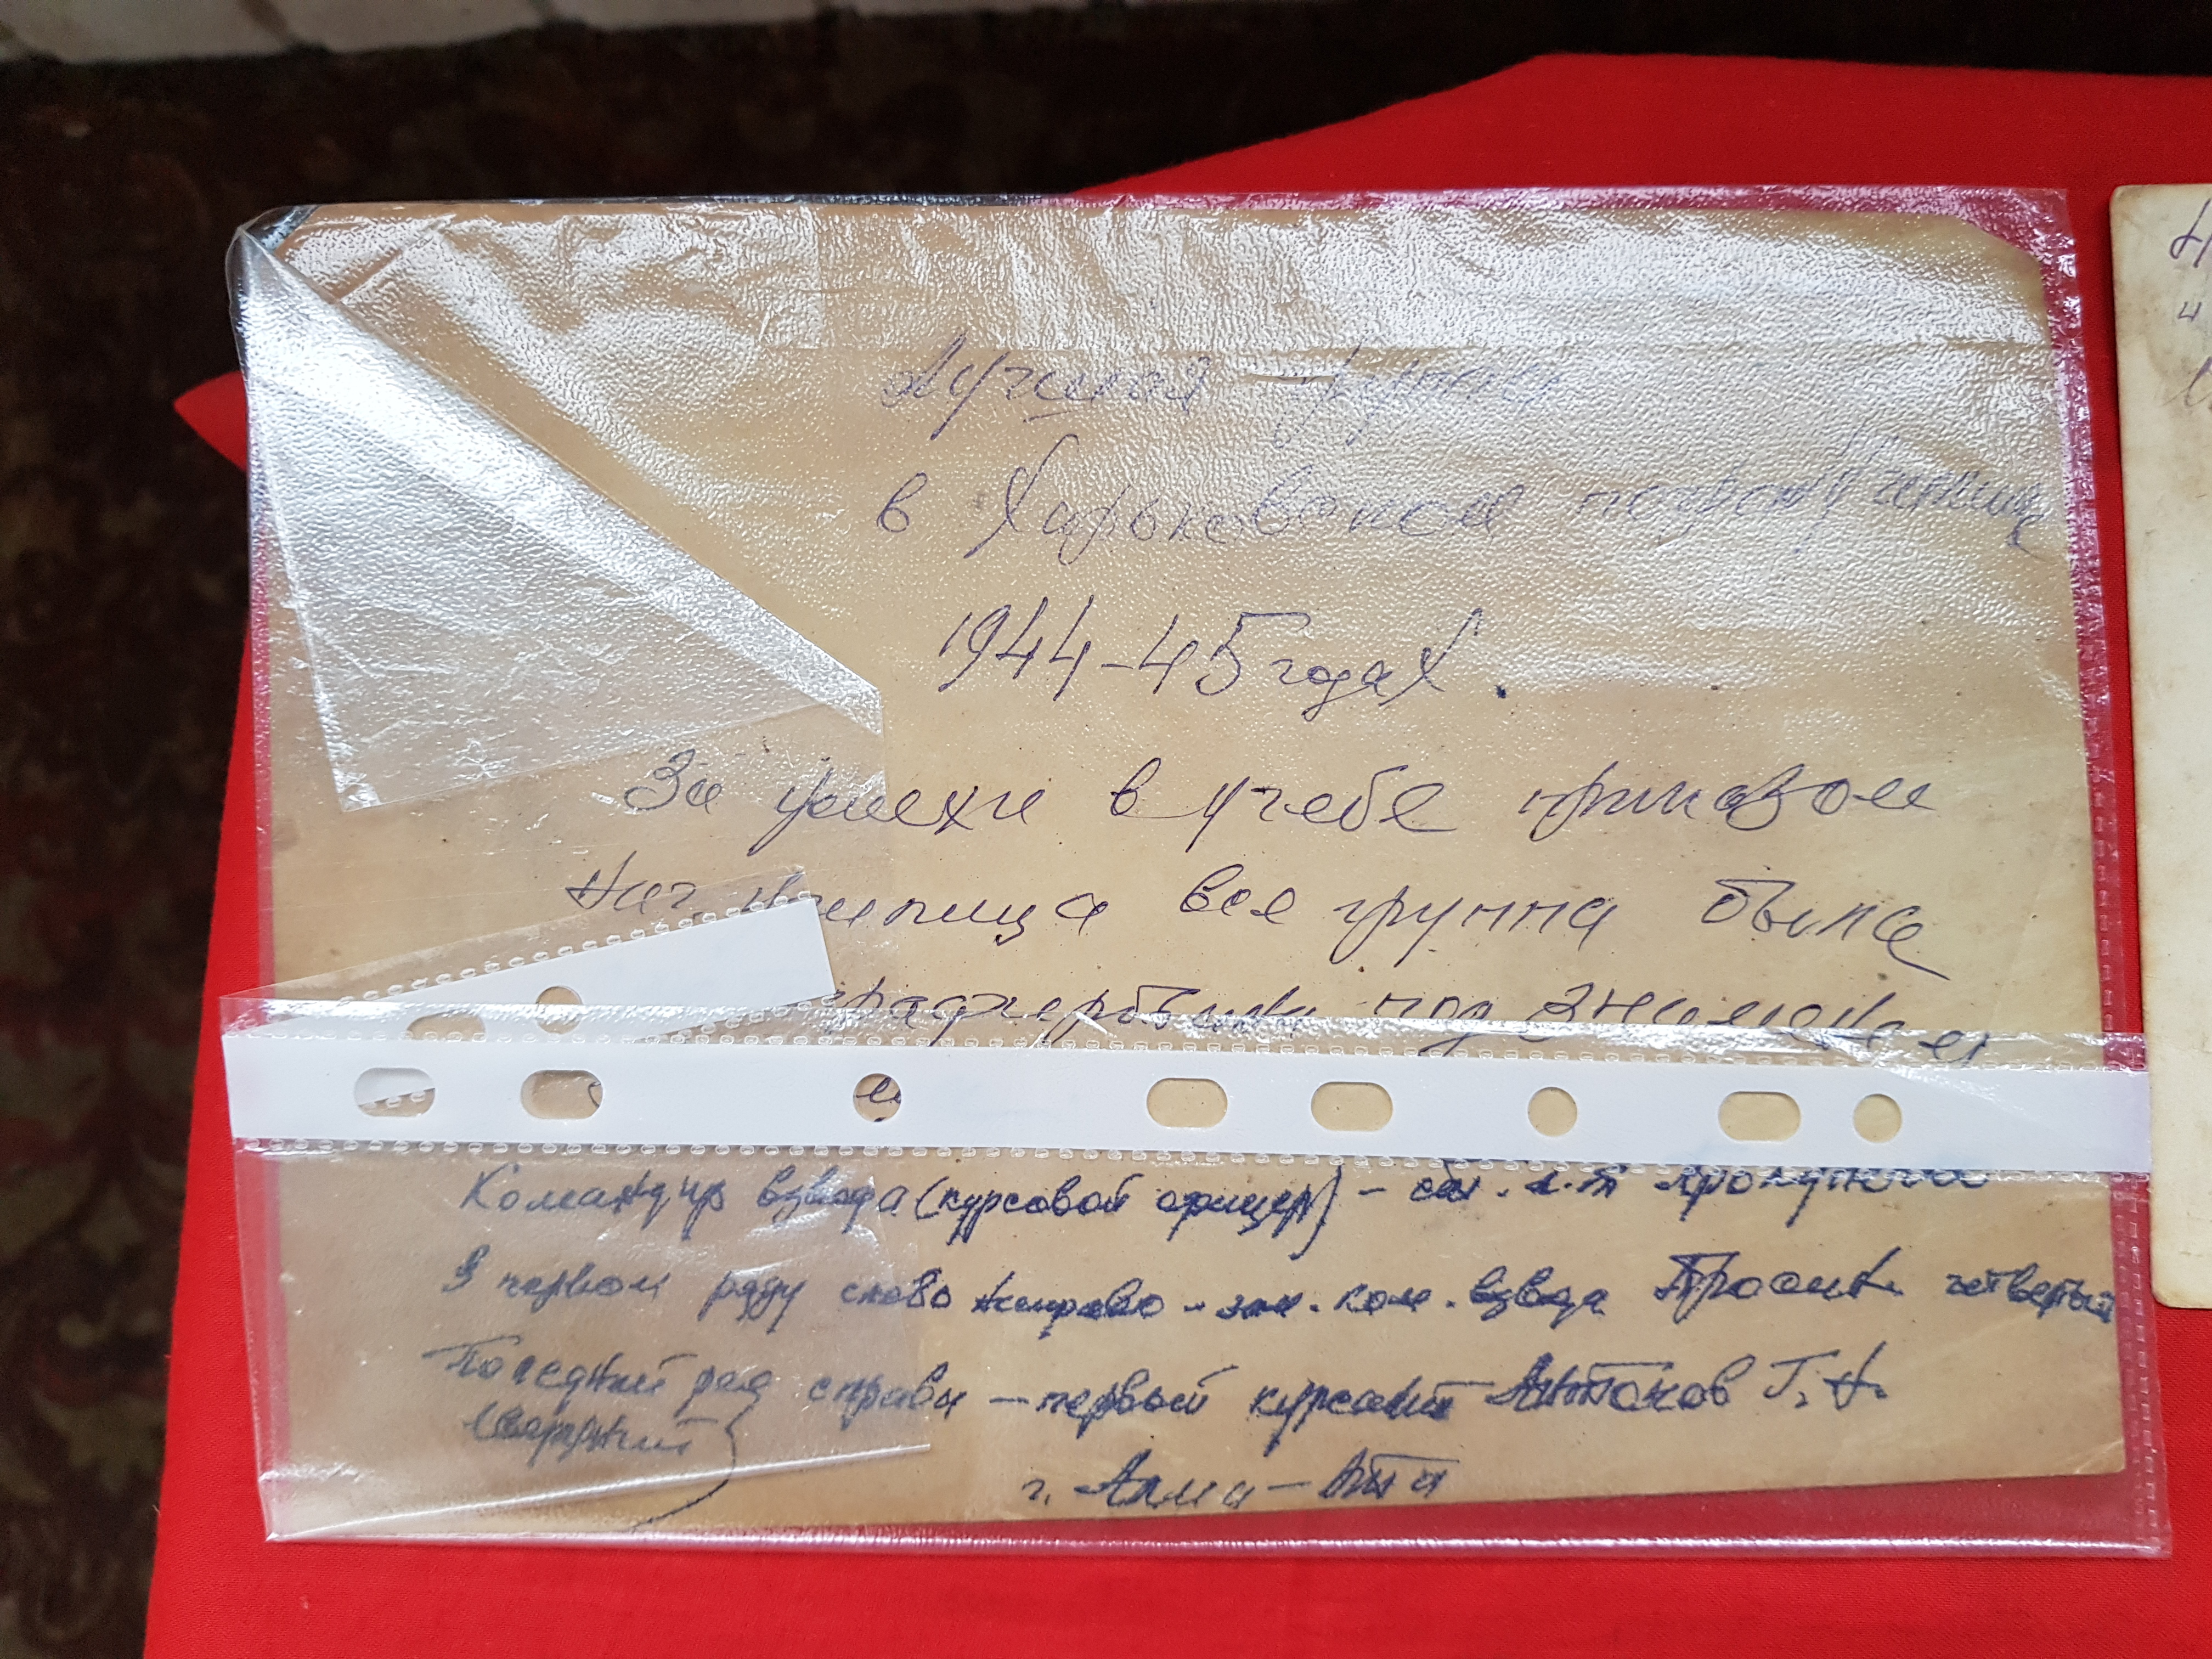 Лучшая группа
в Харьковском погран училище
1944-45 годах.
За успехи в учебе приказом
Нач. училища вся группа была
под знаменем
Командир взвода (курсовой офицер) - ст. л-т
В первом ряду слева направо - зам. ком. взвода четвертый
Последний ряд справа - первый курсант Антонов Г. Н.
(верхний)
г. Алма-Ата